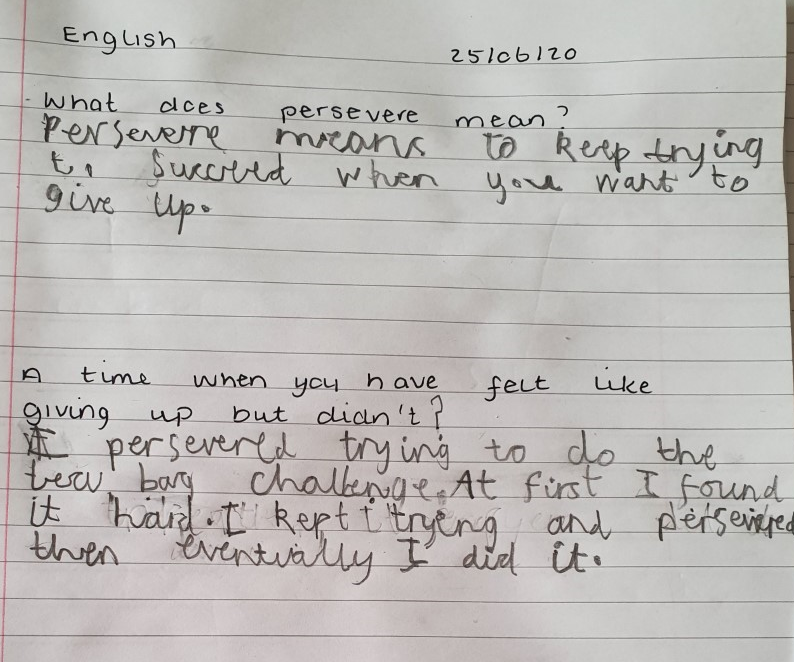 English
25/06/20
What does persevere mean?
Persevere means to keep trying
to succeed when you want to
give up.
A time when you have felt like
giving up but didn't?
I persevered trying to do the
bag challenge. At first I found
it hard. I kept tryeng and persevered
then eventually I did it.